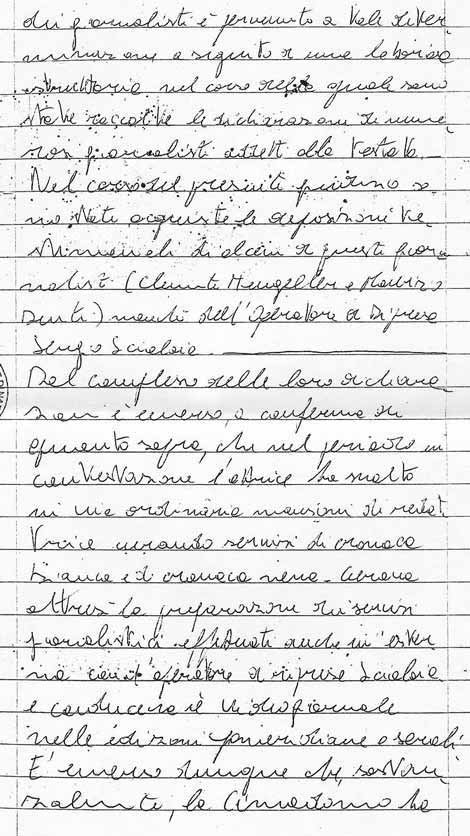 dei giornalisti è pervenuto a tale deter
minazione a seguito di una laboriosa
istruttoria nel corso della quale sono
state raccolte le dichiarazioni di nume
rosi giornalisti addetti alla testata.
Nel corso del presente giudizio so
no state acquisite le deposizioni te
stimoniali di alcuni di questi gior
nalisti (Clemente Mengeller e Maurizio
Denti) nonché dell'operatore di ripresa
Sergio Scialoia.
Dal complesso delle loro dichiara
zioni è emerso, a conferma di
quanto sopra, che nel periodo in
contestazione l'attrice ha svolto
in via ordinaria mansioni di redat
trice curando servizi di cronaca
bianca e di cronaca nera. Curava
altresì la preparazione di servizi
giornalistici effettuati anche in ester
na con l'operatore di riprese Scialoia
e conduceva il videogiornale
nelle edizioni pomeridiane e serali.
E' emerso dunque che, sostan
zialmente, la ha